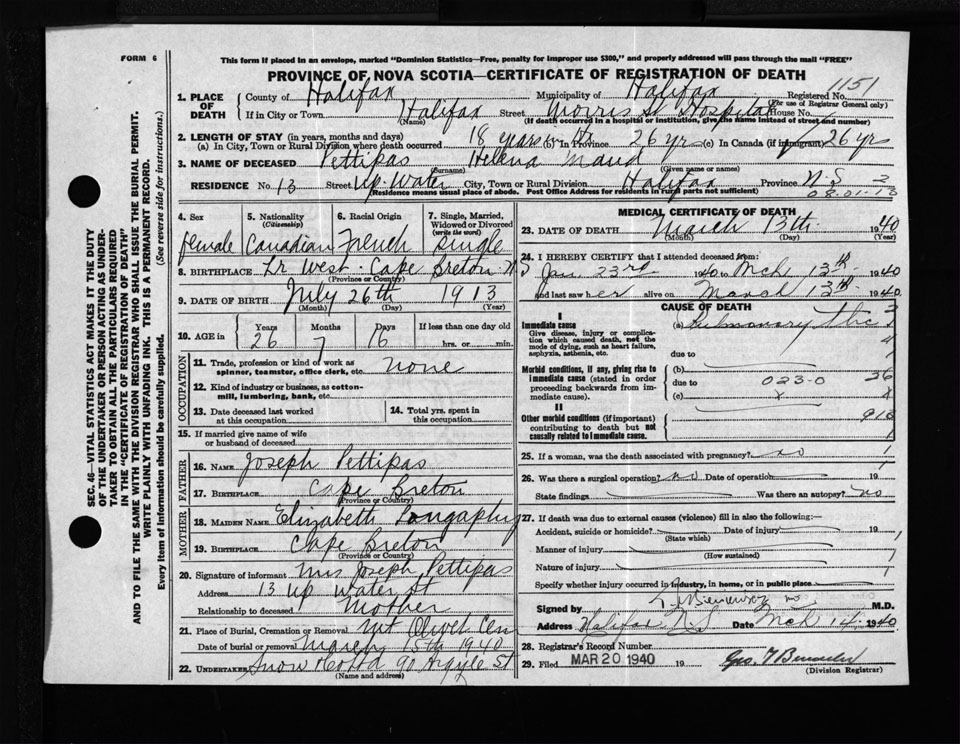 FORM 6
This form if placed in an envelope, marked "Dominion Statistics—Free, penalty for improper use $300," and properly addressed will pass through the mail "FREE"
PROVINCE OF NOVA SCOTIA—CERTIFICATE OF REGISTRATION OF DEATH
1151
1. PLACE OF DEATH
County of Halifax Municipality of Halifax Registered No.
(For use of Registrar General only)
If in City or Town Halifax Street Morris St Hospital House No.
(Name) (If death occurred in a hospital or institution, give the name instead of street and number)
2. LENGTH OF STAY (in years, months and days)
(a) In City, Town or Rural Division where death occurred 18 years (b) In Province 26 yr (c) In Canada (if immigrant) 26 yr
3. NAME OF DECEASED Pettipas Helena Maud
(Surname) (Given name or names)
RESIDENCE No. 13 Street Up. Water City, Town or Rural Division Halifax Province N.S
(Residence means usual place of abode. Post Office Address for residents in rural parts not sufficient)
4. Sex female
5. Nationality (Citizenship) Canadian
6. Racial Origin French
7. Single, Married, Widowed or Divorced (write the word) Single
8. BIRTHPLACE Lr West. Cape Breton N.S
(Province or Country)
9. DATE OF BIRTH July 26th 1913
(Month) (Day) (Year)
10. AGE in Years 26 Months 7 Days 16 If less than one day old hrs. or min.
OCCUPATION
11. Trade, profession or kind of work as spinner, teamster, office clerk, etc. none
12. Kind of industry or business, as cotton-mill, lumbering, bank, etc.
13. Date deceased last worked at this occupation
14. Total yrs. spent in this occupation
15. If married give name of wife or husband of deceased
FATHER
16. NAME Joseph Pettipas
17. BIRTHPLACE Cape Breton
(Province or Country)
MOTHER
18. MAIDEN NAME Elizabeth Longaphy
19. BIRTHPLACE Cape Breton
(Province or Country)
20. Signature of informant Mrs Joseph Pettipas
Address 13 Up Water St
Relationship to deceased Mother
21. Place of Burial, Cremation or Removal Mt Olivet Cem
Date of burial or removal March 15th 1940
22. UNDERTAKER Snow & Co Ltd 90 Argyle St
(Name and address)
MEDICAL CERTIFICATE OF DEATH
23. DATE OF DEATH March 13th 1940
(Month) (Day) (Year)
24. I HEREBY CERTIFY that I attended deceased from:
Jan 23rd 1940 to Mch 13th 1940
and last saw her alive on March 13th 1940.
CAUSE OF DEATH
I
Immediate cause (a) Pulmonary Tbc
Give disease, injury or complication which caused death, not the mode of dying, such as heart failure, asphyxia, asthenia, etc.
due to
Morbid conditions, if any, giving rise to immediate cause (stated in order proceeding backwards from immediate cause).
(b)
due to 023-0
(c)
II
Other morbid conditions (if important) contributing to death but not causally related to immediate cause.
25. If a woman, was the death associated with pregnancy? no
26. Was there a surgical operation? no Date of operation 19
State findings Was there an autopsy? no
27. If death was due to external causes (violence) fill in also the following:—
Accident, suicide or homicide? Date of injury 19
(State which)
Manner of injury
(How sustained)
Nature of injury
Specify whether injury occurred in industry, in home, or in public place
Signed by M.D.
Address Halifax N.S Date Mch 14 1940
28. Registrar's Record Number
29. Filed MAR 20 1940 19
(Division Registrar)
SEC. 46—VITAL STATISTICS ACT MAKES IT THE DUTY
OF THE UNDERTAKER OR PERSON ACTING AS UNDER-
TAKER TO OBTAIN ALL THE PARTICULARS REQUIRED
IN THE "CERTIFICATE OF REGISTRATION OF DEATH"
AND TO FILE THE SAME WITH THE DIVISION REGISTRAR WHO SHALL ISSUE THE BURIAL PERMIT.
WRITE PLAINLY WITH UNFADING INK. THIS IS A PERMANENT RECORD.
Every item of information should be carefully supplied. (See reverse side for instructions.)